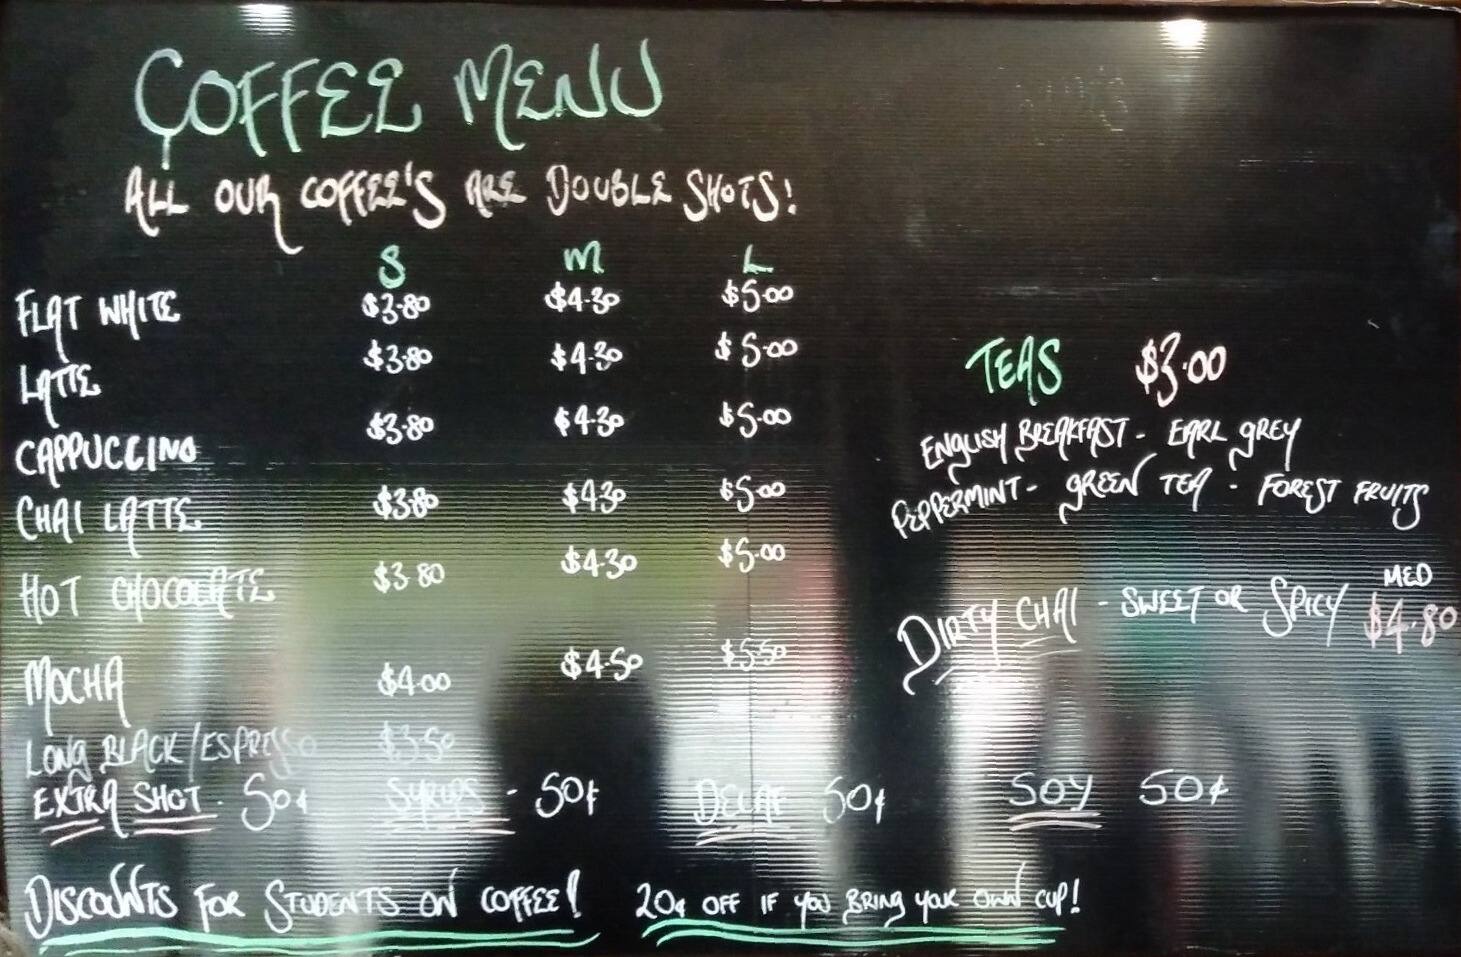 COFFEE MENU
ALL OUR COFFEE'S ARE DOUBLE SHOTS!
S M L
FLAT WHITE $3.80 $4.30 $5.00
LATTE $3.80 $4.30 $5.00
CAPPUCCINO $3.80 $4.30 $5.00
CHAI LATTE $3.80 $4.30 $5.00
HOT CHOCOLATE $3.80 $4.30 $5.00
MOCHA $4.00 $4.50 $5.50
LONG BLACK/ESPRESSO $3.50
EXTRA SHOT - 50¢ SYRUPS - 50¢ DECAF 50¢ SOY 50¢
DISCOUNTS FOR STUDENTS ON COFFEE! 20¢ OFF IF YOU BRING YOUR OWN CUP!
TEAS $3.00
ENGLISH BREAKFAST - EARL GREY
PEPPERMINT - GREEN TEA - FOREST FRUITS
MED
DIRTY CHAI - SWEET OR SPICY $4.80